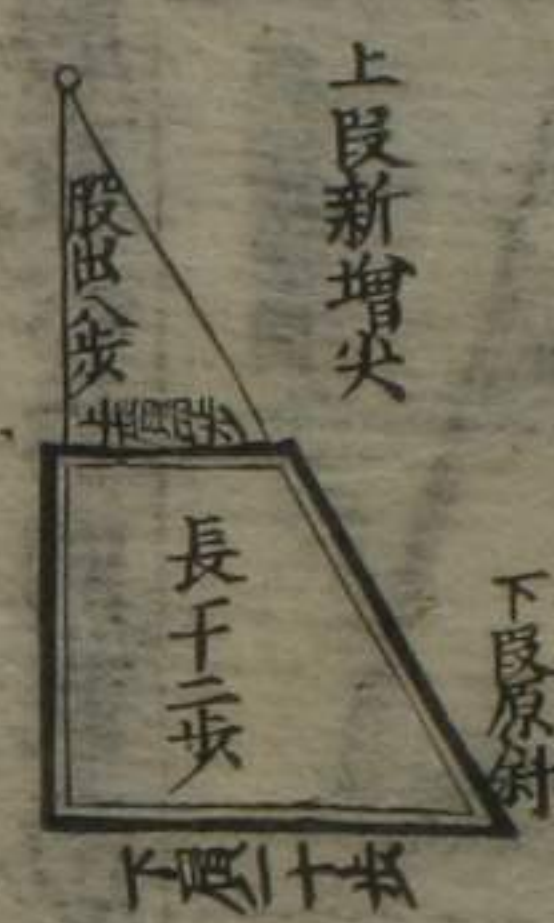 上段新增尖
股出八步
上廣四步
長一十二步
下段原斜
下廣一十步